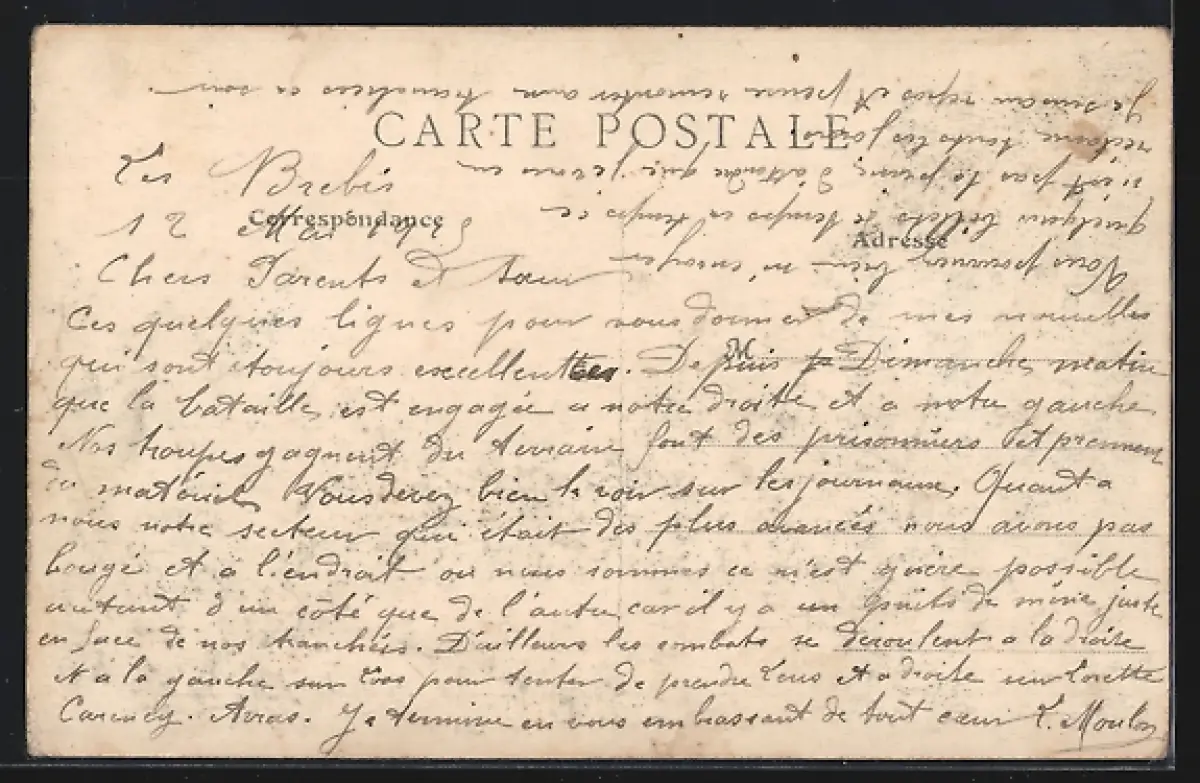 CARTE POSTALE
Correspondance
Adresse
Les Brebis
12 Mai 1915
Chers Parents et sœur
Ces quelques lignes pour vous donner de mes nouvelles
qui sont toujours excellentes. Depuis Dimanche matin
que la bataille est engagée a notre droite et a notre gauche
Nos troupes gagnent du terrain font des prisonniers et prennent
du matériel Vous devez bien le voir sur les journaux. Quant a
nous notre secteur qui était des plus avancés nous avons pas
bougé et a l'endroit ou nous sommes ce n'est guère possible
autant d'un côté que de l'autre car il y a un puits de mine juste
en face de nos tranchées. D'ailleurs les combats se déroulent a la droite
et a la gauche sur Loos pour tenter de prendre Lens et a droite sur Lorette
Carency. Arras. Je termine en vous embrassant de tout cœur L. Moulon
Vous pourriez bien m'envoyer
quelques billets de temps en temps ce
n'est pas la peine d'attendre que je vous en
réclame toutes les fois
Je suis au repos et pense remonter aux tranchées ce soir.